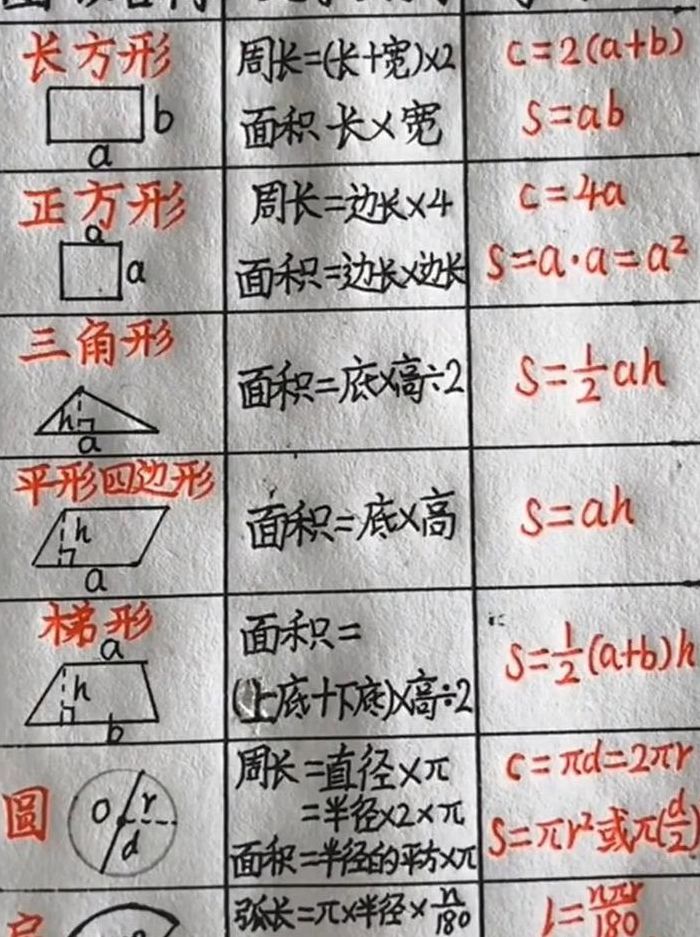 长方形
b
a
周长=(长+宽)×2
面积 长×宽
C=2(a+b)
S=ab
正方形
a
a
周长=边长×4
面积=边长×边长
C=4a
S=a·a=a²
三角形
h
a
面积=底×高÷2
S=1/2 ah
平行四边形
h
a
面积=底×高
S=ah
梯形
a
h
b
面积=
(上底+下底)×高÷2
S=1/2(a+b)h
圆
O r
d
周长=直径×π
=半径×2×π
面积=半径的平方×π
C=πd=2πr
S=πr²或π(d/2)
弧长=π×半径×n/180
l=nπr/180